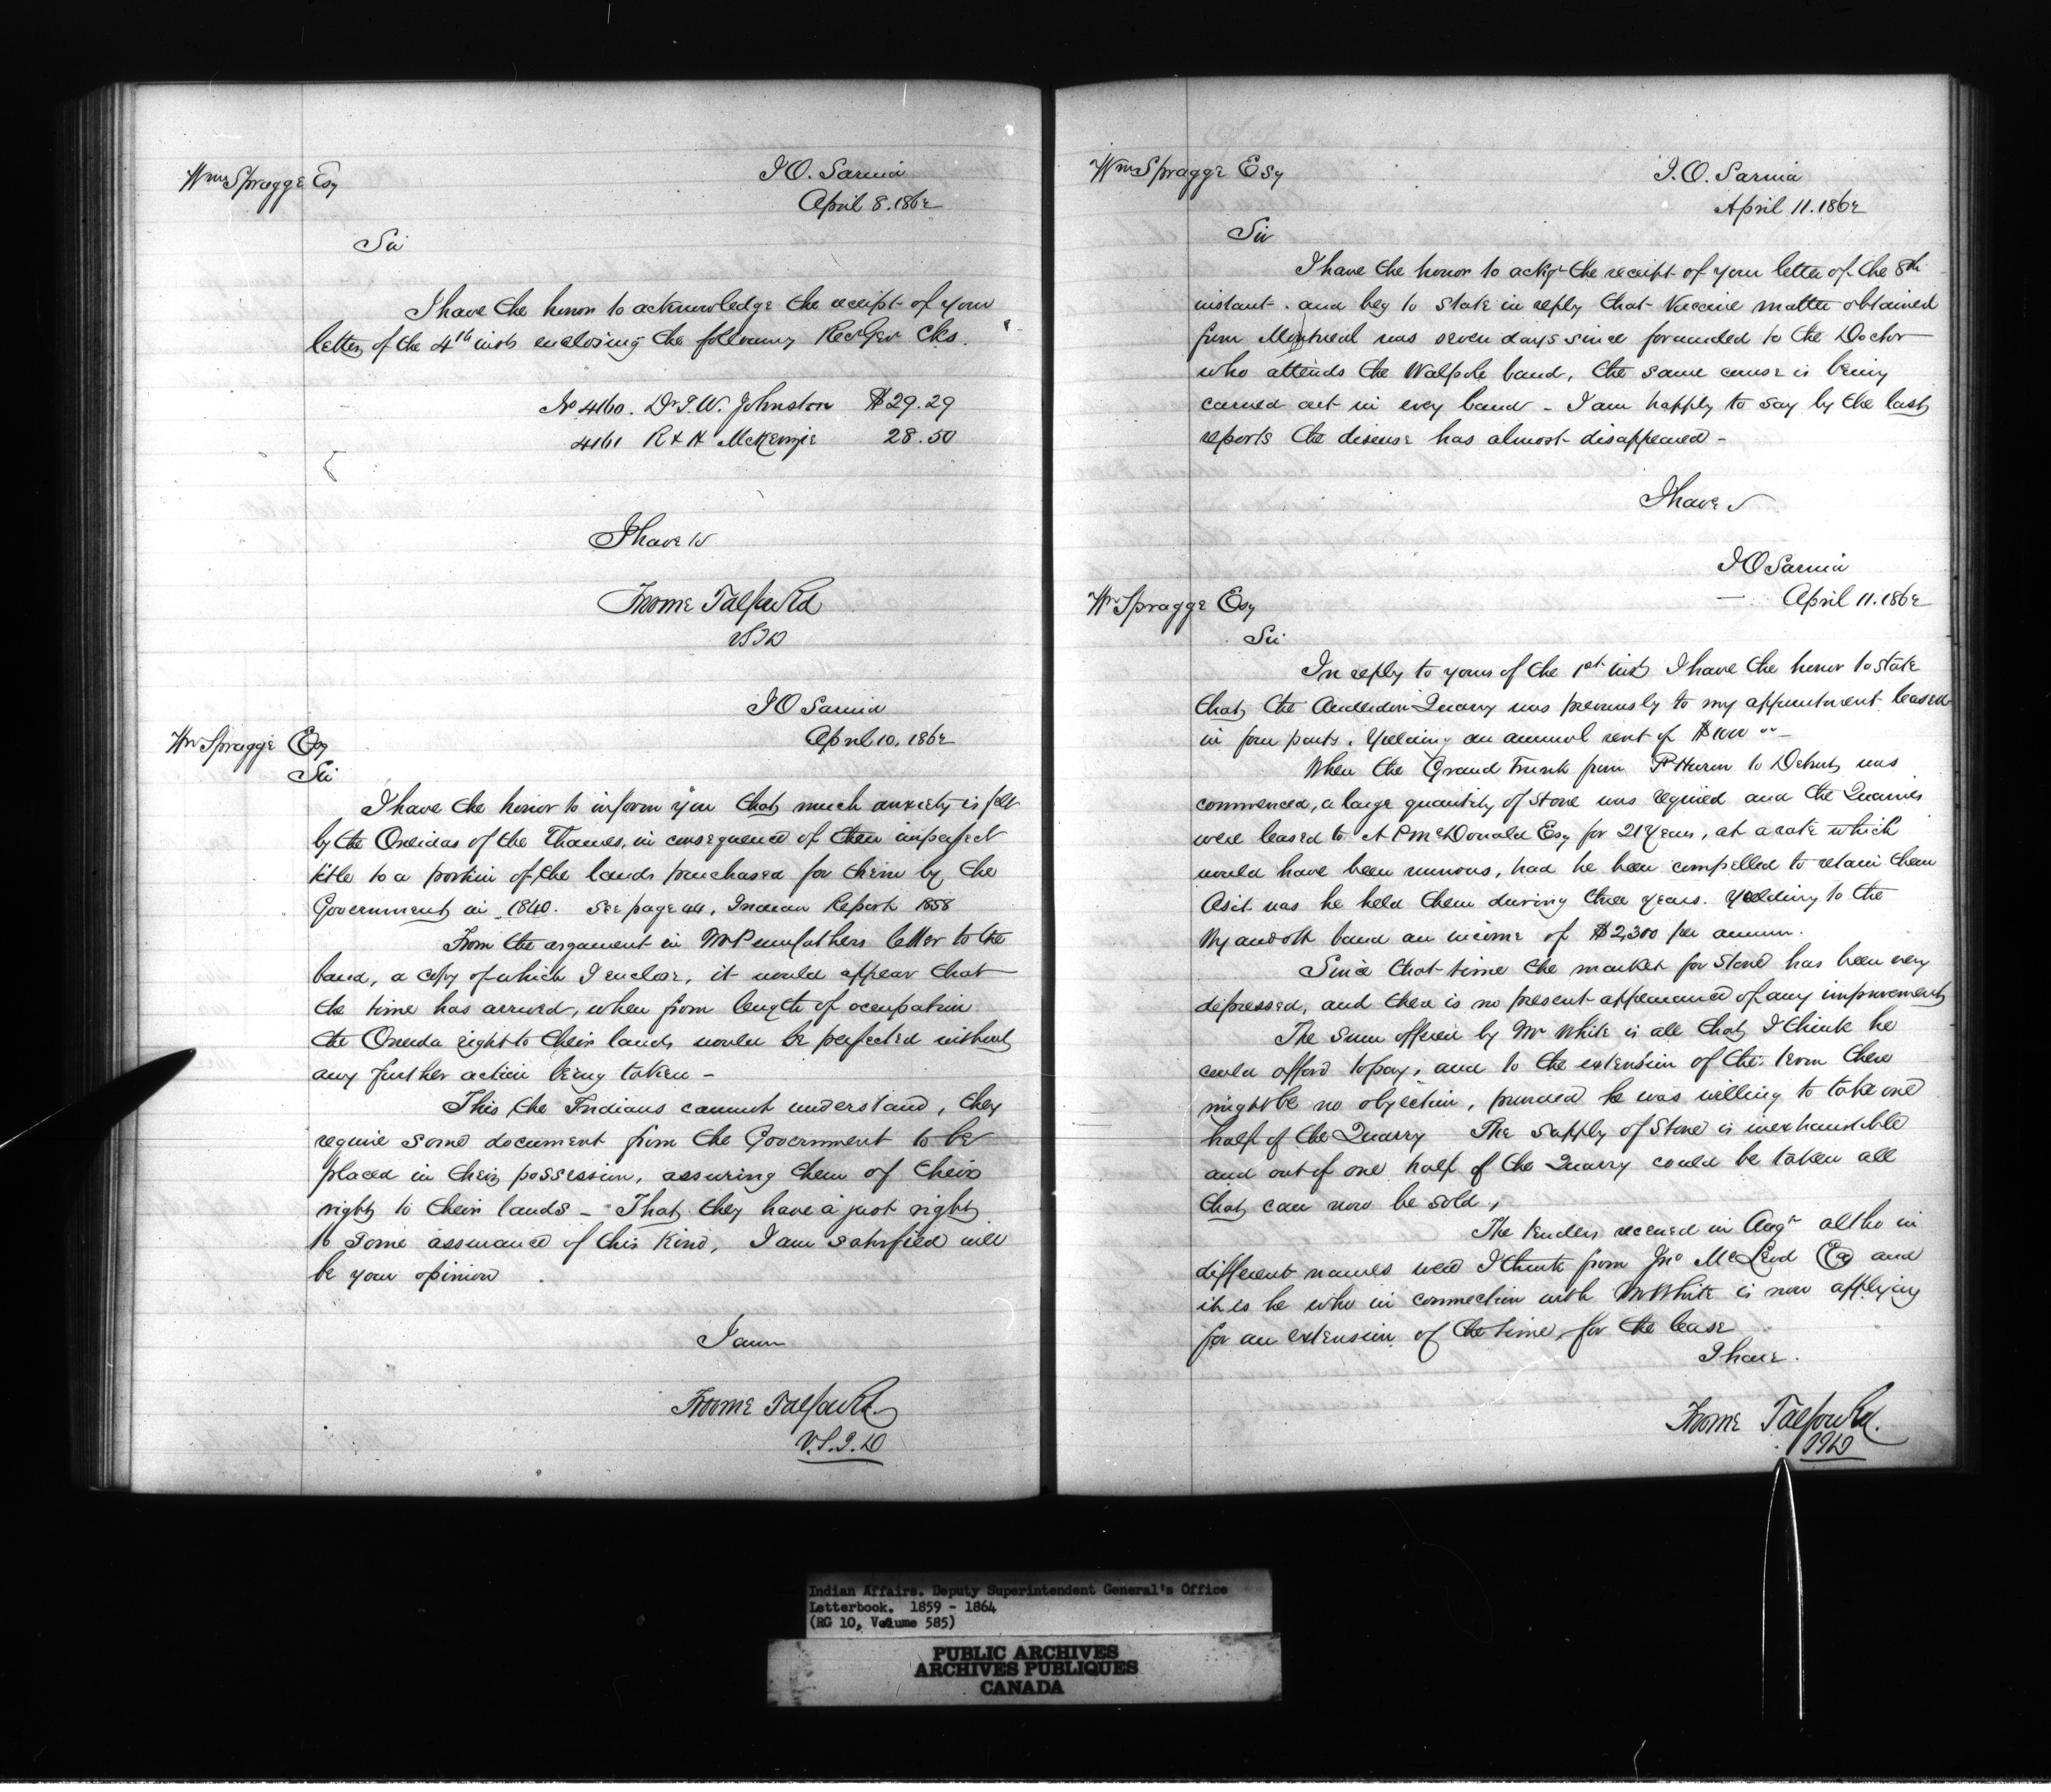 Wm Spragge Esq
I.O. Sarnia
April 8. 1862
Sir
I have the honor to acknowledge the receipt of your
letter of the 4th inst enclosing the following Rec Gen Cks.
No 4160. Dr T.W. Johnston $29.29
4161 R & H McKenzie 28.50
I have &c
Froome Talfourd
VSID
IO Sarnia
April 10. 1862
Wm Spragge Esq
Sir
I have the honor to inform you that much anxiety is felt
by the Oneidas of the Thames, in consequence of their imperfect
title to a portion of the lands purchased for them by the
Government in 1840. See page 44, Indian Report 1858
From the argument in Mr Pennfathers letter to the
band, a copy of which I enclose, it would appear that
the time has arrived, when from length of occupation
the Oneida right to their lands would be perfected without
any further action being taken -
This the Indians cannot understand, they
require some document from the Government to be
placed in their possession, assuring them of their
right to their lands - That they have a just right
to some assurance of this kind, I am satisfied will
be your opinion
I am
Froome Talfourd
V.S.I.D
Wm Spragge Esq
I.O. Sarnia
April 11. 1862
Sir
I have the honor to ackge the receipt of your letter of the 8th
instant. and beg to state in reply that Vaccine matter obtained
from Montreal was seven days since forwarded to the Doctor
who attends the Walpole band, the same course is being
carried out in every band - I am happy to say by the last
reports the disease has almost disappeared -
I have
IO Sarnia
April 11. 1862
Wm Spragge Esq
Sir
In reply to yours of the 1st inst I have the honor to state
that the Anderdon Quarry was previously to my appointment leased
in four parts, yielding an annual rent of $1000
When the Grand Trunk from Pt Huron to Detroit was
commenced, a large quantity of stone was required and the Quarries
were leased to A P McDonald Esq for 21 Years, at a rate which
would have been ruinous, had he been compelled to retain them
As it was he held them during three years. Yielding to the
Wyandott band an income of $2,300 per annum.
Since that time the market for stone has been very
depressed, and there is no present appearance of any improvement
The sum offered by Mr White is all that I think he
could afford to pay, and to the extension of the term there
might be no objection, provided he was willing to take one
half of the Quarry The supply of Stone is inexhaustible
and out of one half of the Quarry could be taken all
that can now be sold,
The tenders received in Augt altho in
different names were I think from Jno McLeod Esq and
it is he who in connection with Mr White is now applying
for an extension of the time for the lease
I have.
Froome Talfourd.
Indian Affairs. Deputy Superintendent General's Office
Letterbook. 1859 - 1864
(RG 10, Volume 585)
PUBLIC ARCHIVES
ARCHIVES PUBLIQUES
CANADA